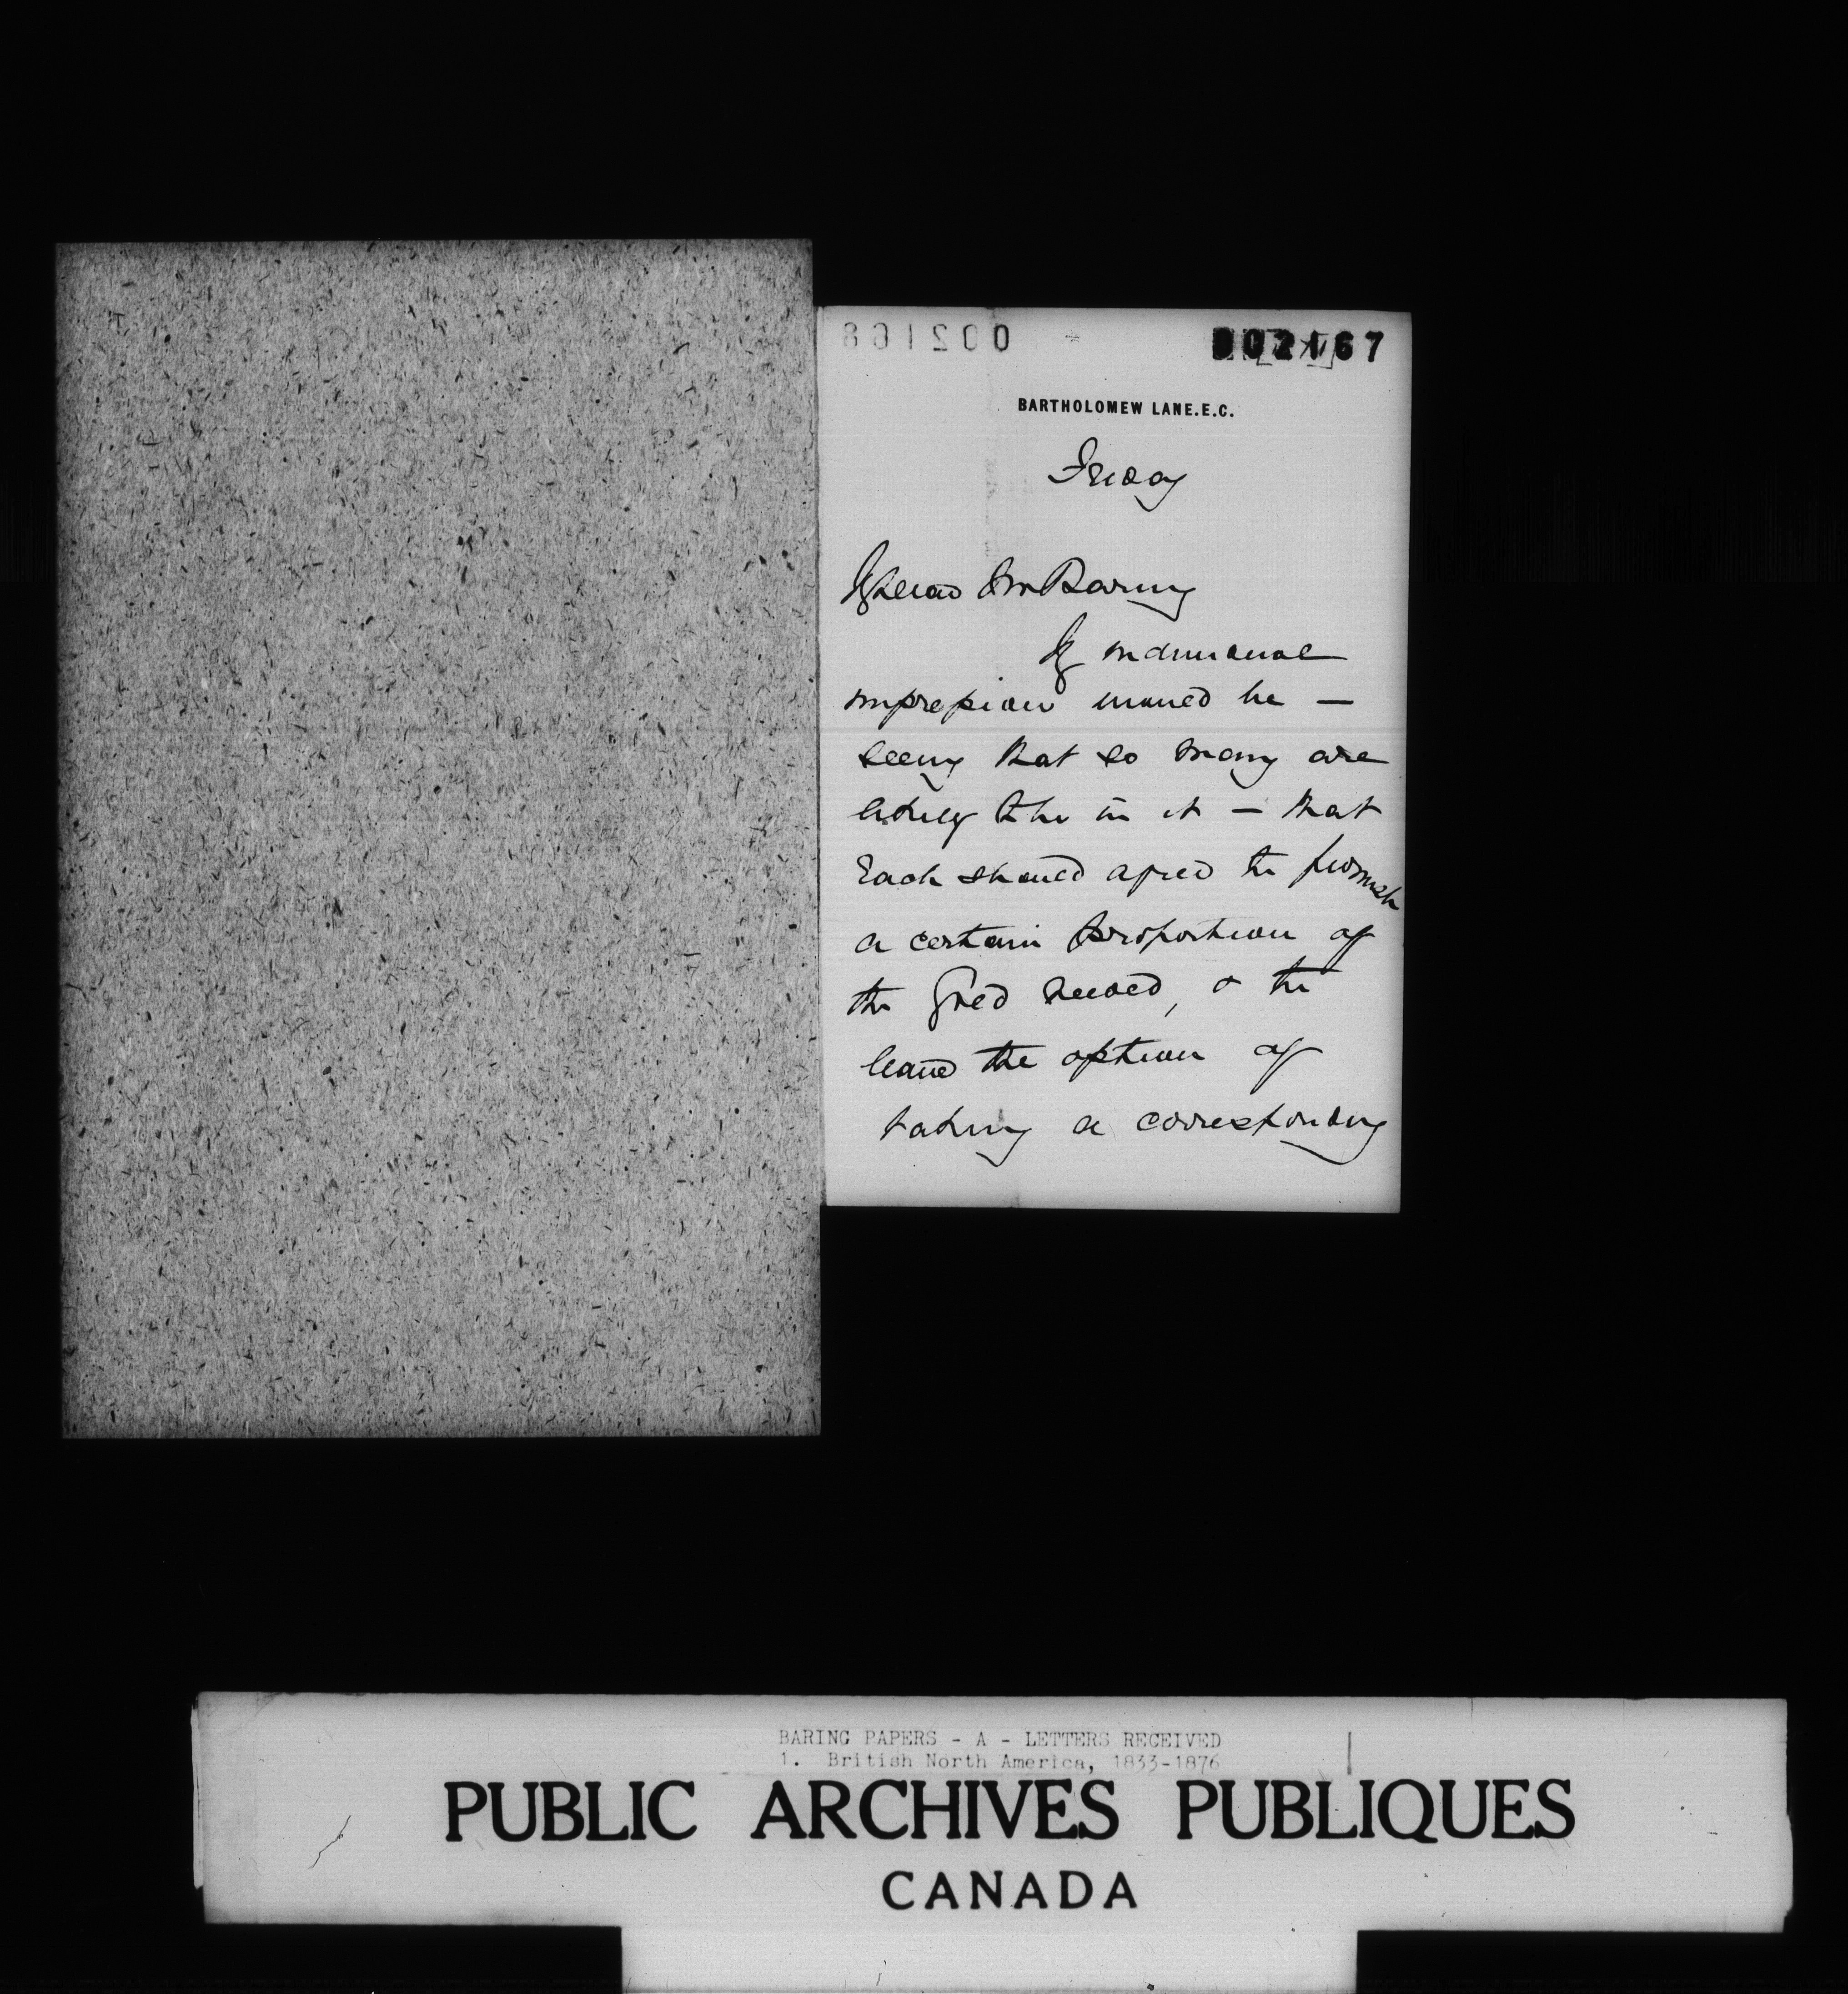 002168
002167
BARTHOLOMEW LANE.E.C.
Friday
My dear Mr Baring
My individual
impression would be —
seeing that so many are
likely to be in it — that
Each should agree to furnish
a certain proportion of
the Gold needed, & to
leave the option of
taking a corresponding
BARING PAPERS - A - LETTERS RECEIVED
1. British North America, 1833-1876
PUBLIC ARCHIVES PUBLIQUES
CANADA